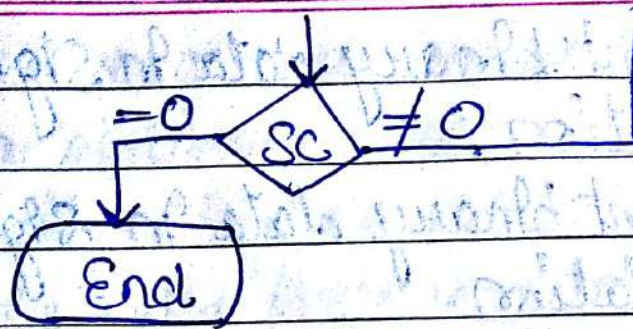 =0 SC ≠ 0
End